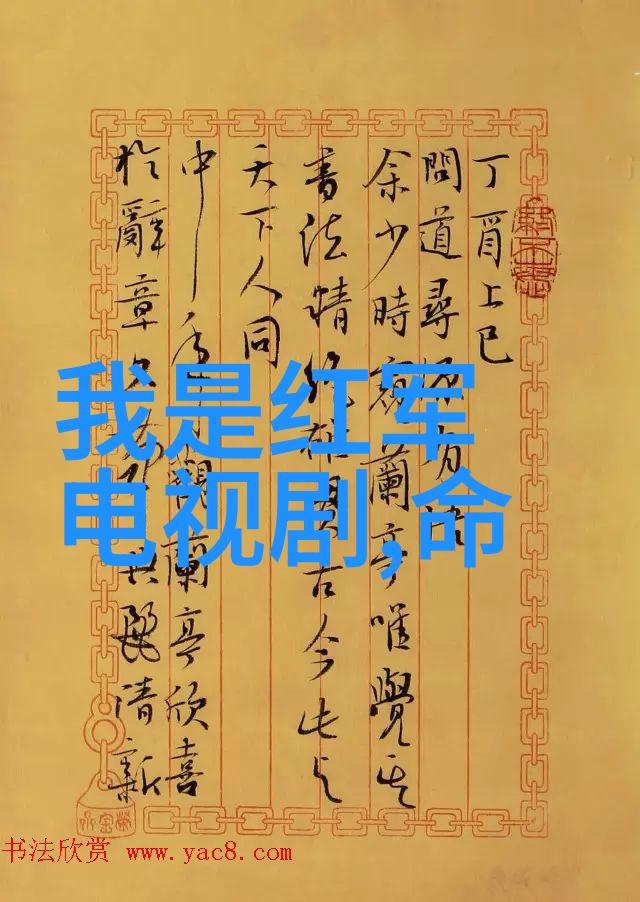 丁酉上巳
問道尋有
余少時蘭亭唯覺其
書法精古今此与
天下人同
中觀蘭亭欣喜
於辭章清新
我是红军
电视剧,命
书法欣赏 www.yac8.com